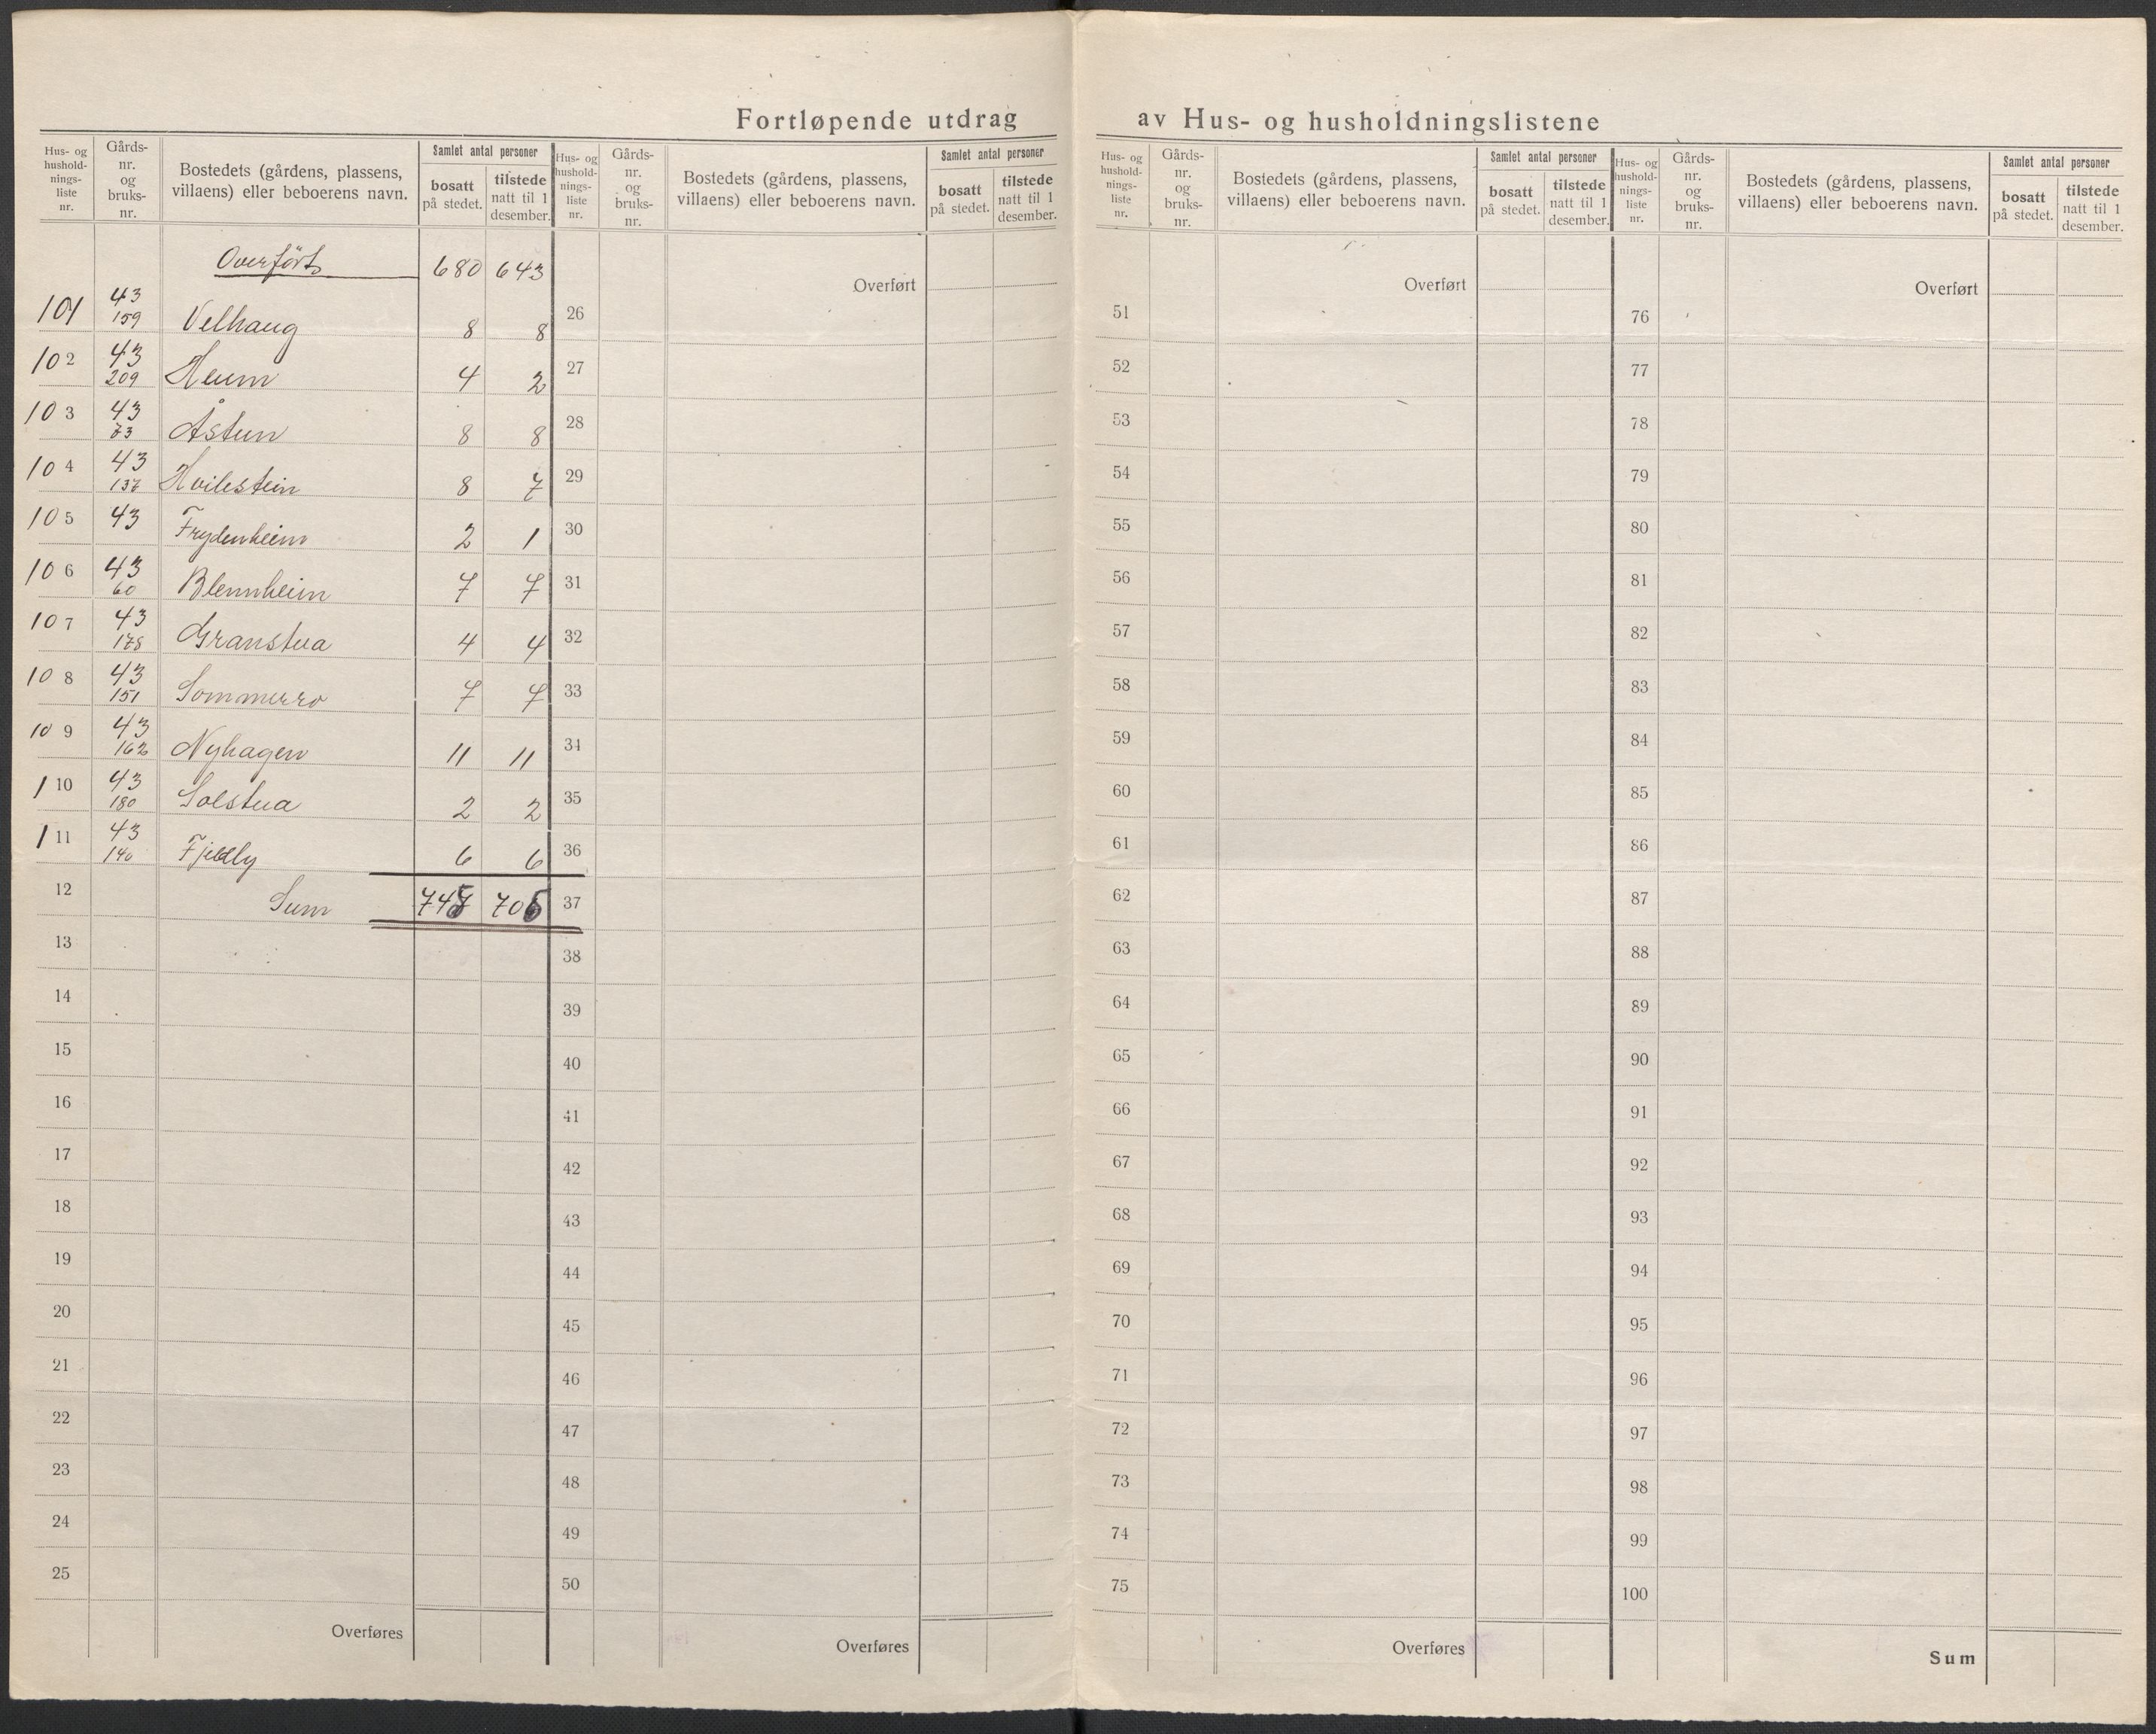 Fortløpende utdrag av Hus- og husholdningslistene
Hus- og hushold-nings-liste nr. Gårds-nr. og bruks-nr. Bostedets (gårdens, plassens, villaens) eller beboerens navn. Samlet antal personer bosatt på stedet. tilstede natt til 1 desember.
Overført 680 643
101 43 159 Velhaug 8 8
102 43 209 Heum 4 2
103 43 73 Åstun 8 8
104 43 137 Hvilestein 8 7
105 43 Frydenheim 2 1
106 43 60 Blennheim 7 7
107 43 178 Granstua 4 4
108 43 151 Sommerro 7 7
109 43 162 Nyhagen 11 11
110 43 180 Solstua 2 2
111 43 140 Fjeldly 6 6
12 Sum 747 706
13
14
15
16
17
18
19
20
21
22
23
24
25
Overføres
Hus- og hushold-nings-liste nr. Gårds-nr. og bruks-nr. Bostedets (gårdens, plassens, villaens) eller beboerens navn. Samlet antal personer bosatt på stedet. tilstede natt til 1 desember.
Overført
26
27
28
29
30
31
32
33
34
35
36
37
38
39
40
41
42
43
44
45
46
47
48
49
50
Overføres
Hus- og hushold-nings-liste nr. Gårds-nr. og bruks-nr. Bostedets (gårdens, plassens, villaens) eller beboerens navn. Samlet antal personer bosatt på stedet. tilstede natt til 1 desember.
Overført
51
52
53
54
55
56
57
58
59
60
61
62
63
64
65
66
67
68
69
70
71
72
73
74
75
Overføres
Hus- og hushold-nings-liste nr. Gårds-nr. og bruks-nr. Bostedets (gårdens, plassens, villaens) eller beboerens navn. Samlet antal personer bosatt på stedet. tilstede natt til 1 desember.
Overført
76
77
78
79
80
81
82
83
84
85
86
87
88
89
90
91
92
93
94
95
96
97
98
99
100
Sum